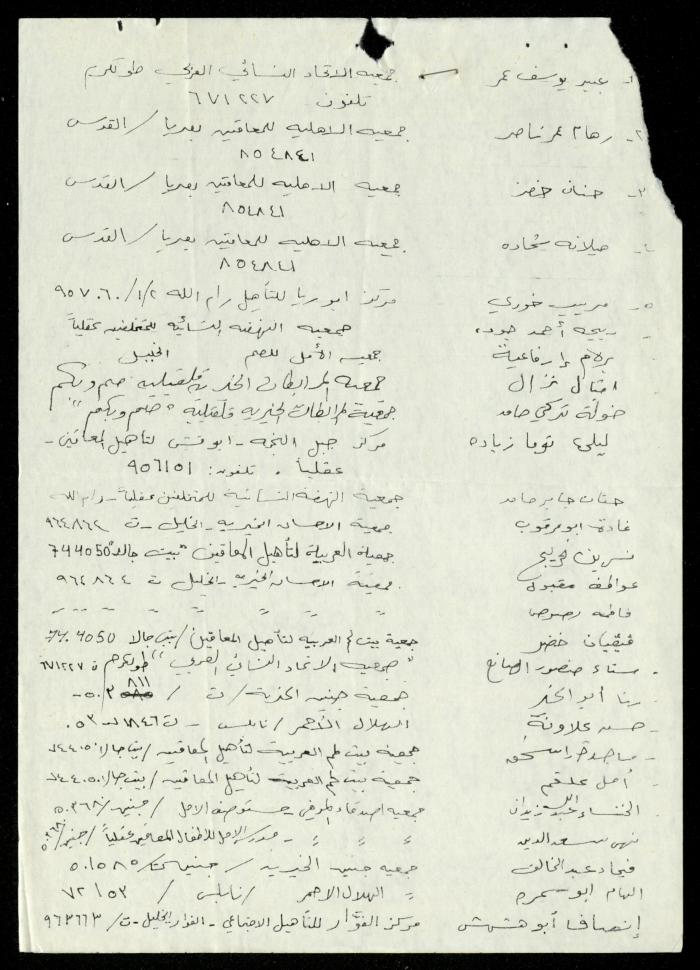 ١- عبير يوسف عمر جمعيه الاتحاد النسائي العربي طولكرم
تلفون ٦٧١٢٢٧
٢- رهام عمر ناصر جمعيه الاهليه للمعاقين بصريا / القدس
٨٥٤٨٤١
٣- حنان خضر جمعيه الاهليه للمعاقين بصريا / القدس
٨٥٤٨٤١
٤- ميلانه شحاده جمعيه الاهليه للمعاقين بصريا / القدس
٨٥٤٨٤١
٥- خوري مركز ابو ريا للتأهيل رام الله ٩٥٧٠٦٠/١/٢
ربيحه أحمد جوده جمعيه النهضه النسائيه للمتخلفين عقلياً
إرفاعية جمعيه الأمل للصم الخليل
امثال نزال جمعيه المرابطات الخيريه قلقيليه صم وبكم
خولة تركي حامد جمعية المرابطات الخيريه قلقيلية "صم وبكم"
ليلى توما زياده مركز جبل النجمه - لتأهيل المعاقين -
عقلياً . تلفون: ٩٥٦١٥١
حنان جابر حامد جمعية النهضة النسائية للمتخلفين عقلياً - رام الله
غادة ابو مرقوب جمعية الاحسان الخيريه - الخليل - ت ٩٦٤٨٦٤
نسرين جمعية العربية لتأهيل المعاقين "بيت جالا" 744050
عواطف مقبول جمعية الاحسان الخيريه - الخليل ت ٩٦٤٨٦٤
فاطمه رصرص " " " " "
خضر جمعية بيت لحم العربيه لتأهيل المعاقين / بيت جالا 744050
سناء منصور الصانع "جمعيه الاتحاد النسائي العربي" طولكرم ت ٦٧١٢٢٧
رنا أبو الخير جمعية جنين الخيرية / ت /
علاونة الهلال الأحمر / نابلس - ت
ماجدة اسحق جمعية بيت لحم العربية لتأهيل المعاقين / بيت جالا ٧٤٤٠٥٠
أمل علقم جمعية بيت لحم العربية لتأهيل المعاقين / بيت جالا ٧٤٤٠٥٠
الخنساء جمعيه اصدقاء المرضى - مستوصف الامل / جنين / ٥٠٣٦٨
نهى سعد الدين " " - الامل للأطفال المعاقين عقلياً / جنين /
عبد الخالق جمعيه جنين الخيريه / جنين / ٥٠١٥٨٥
الهام ابو سمره الهلال الاحمر / نابلس / ٧٢١٥٣
إنصاف أبو هشهش مركز الفوّار للتأهيل الاجتماعي - الفوار الخليل - ت / ٩٦٣٦٦٣